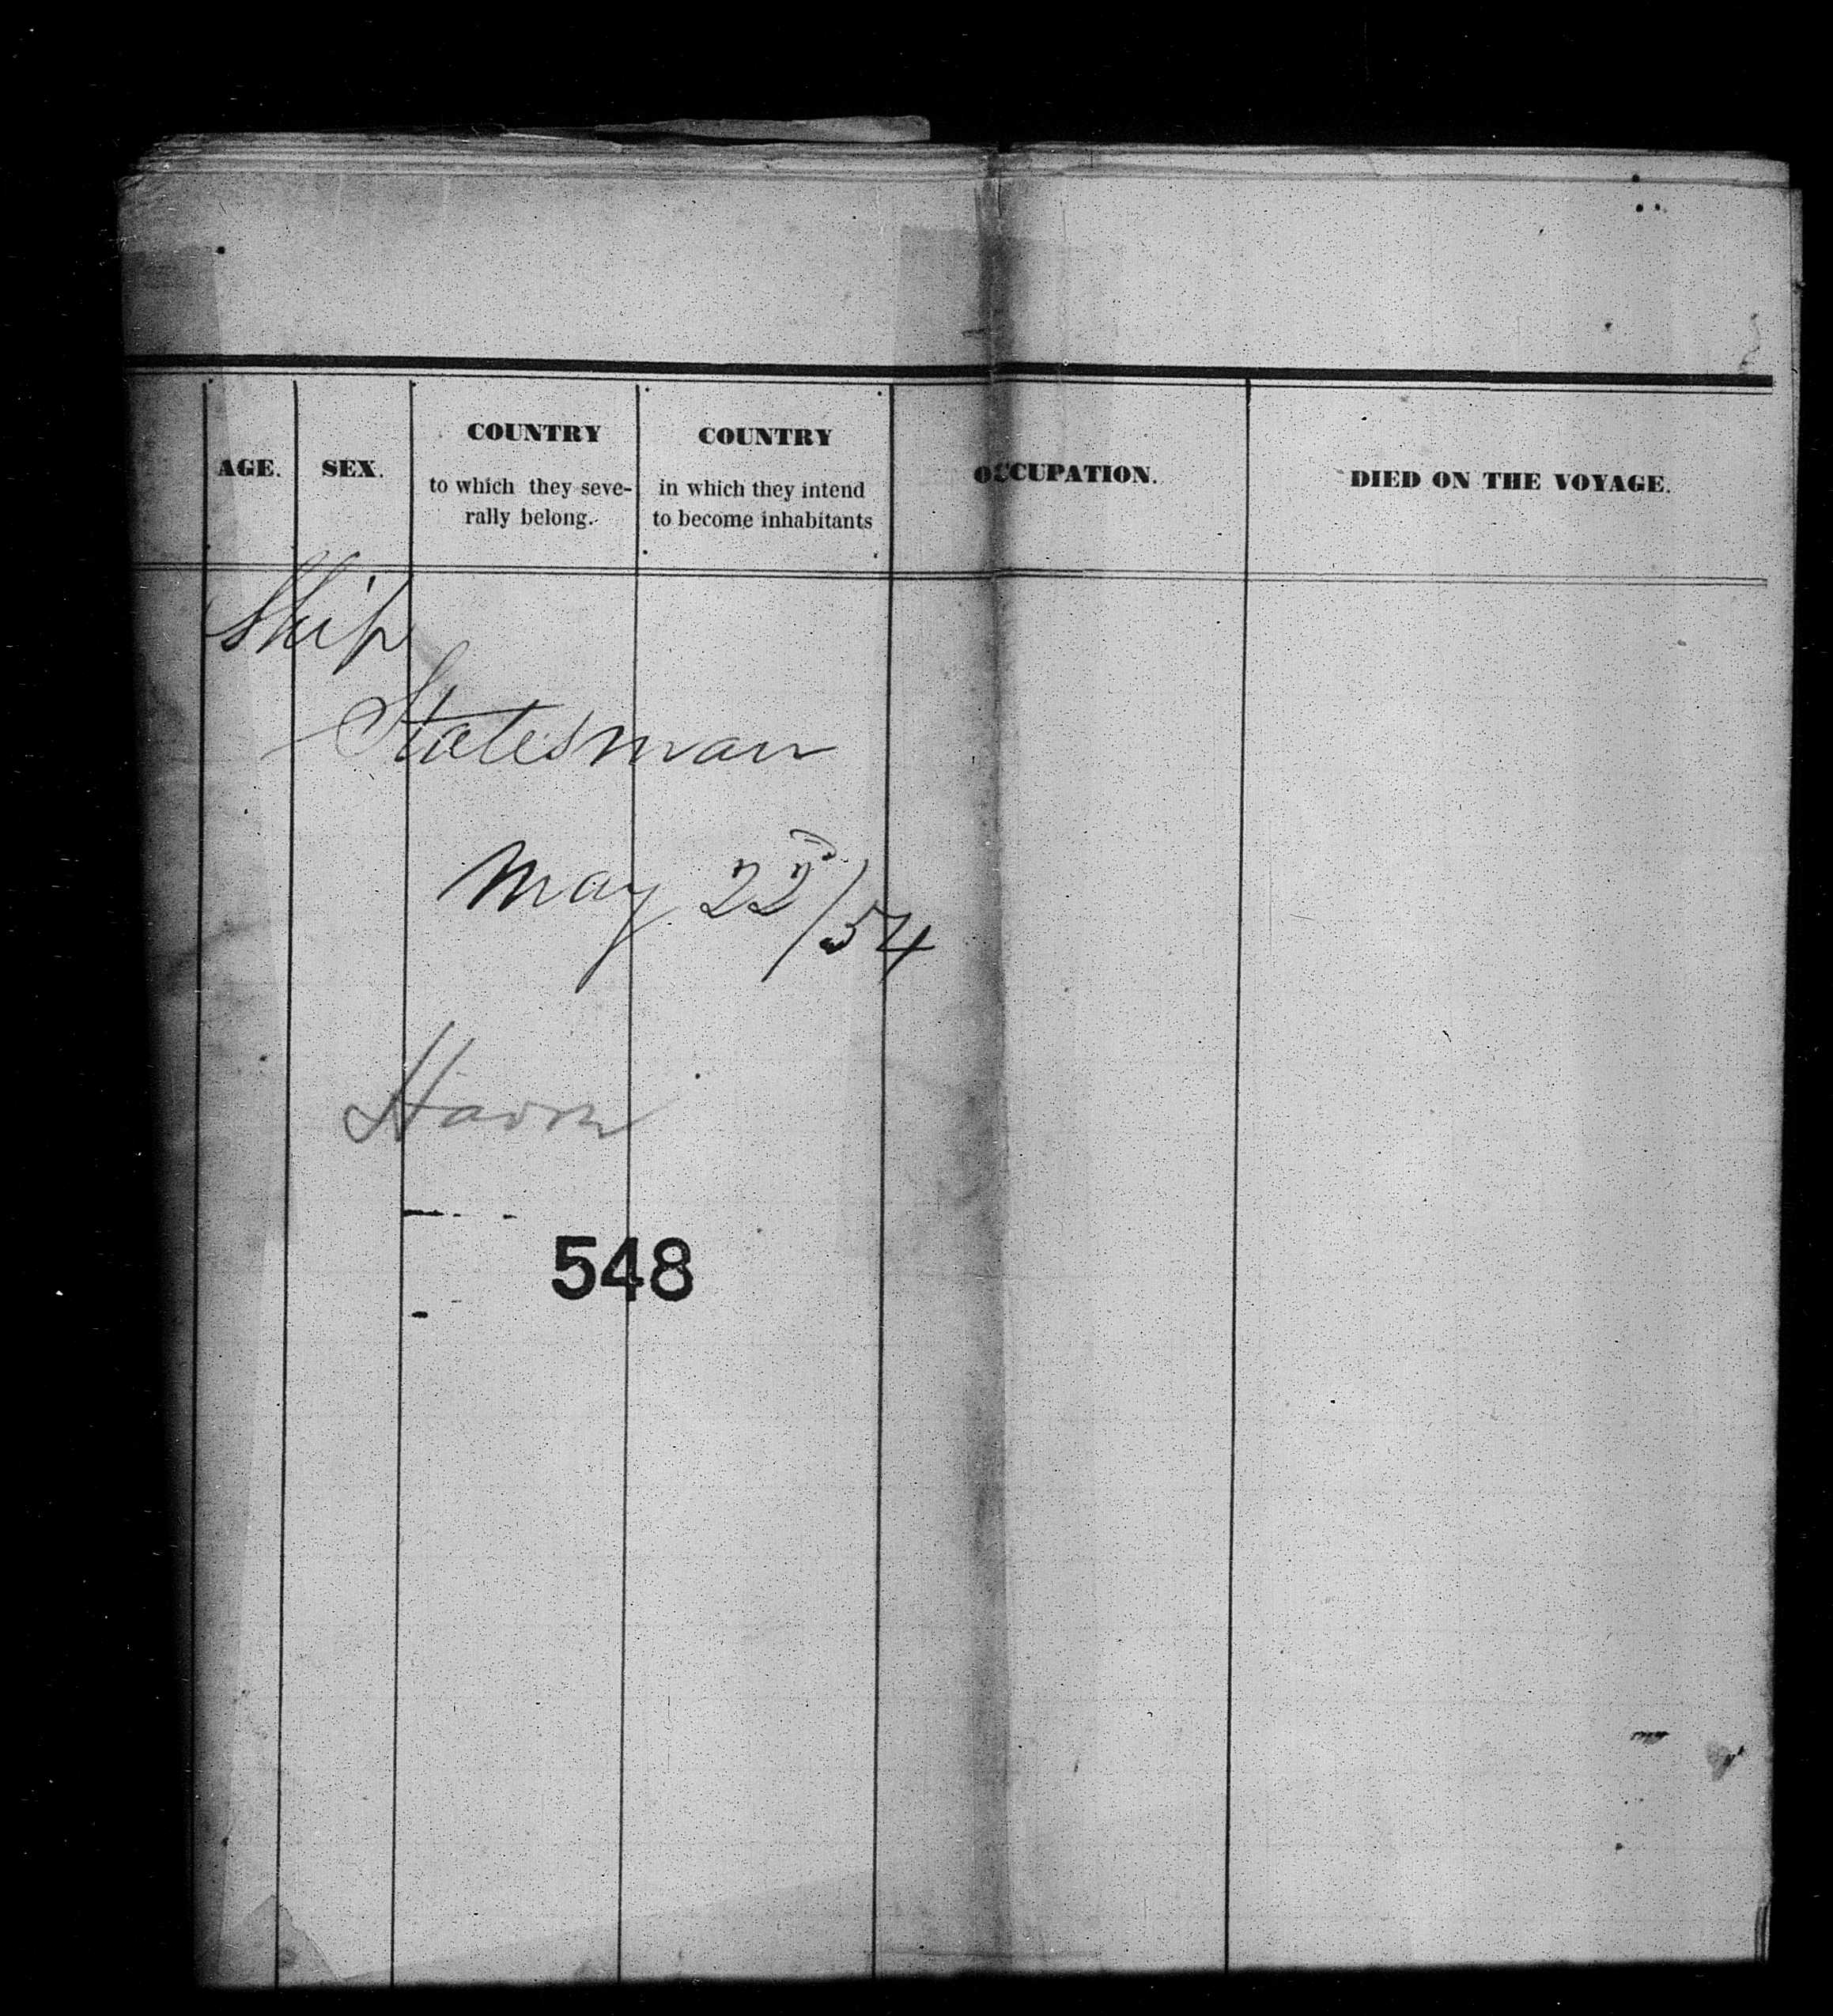 AGE.
SEX.
COUNTRY
to which they seve-
rally belong.
COUNTRY
in which they intend
to become inhabitants
OCCUPATION.
DIED ON THE VOYAGE.
Ship
Statesman
May 22d/54
Havre
548